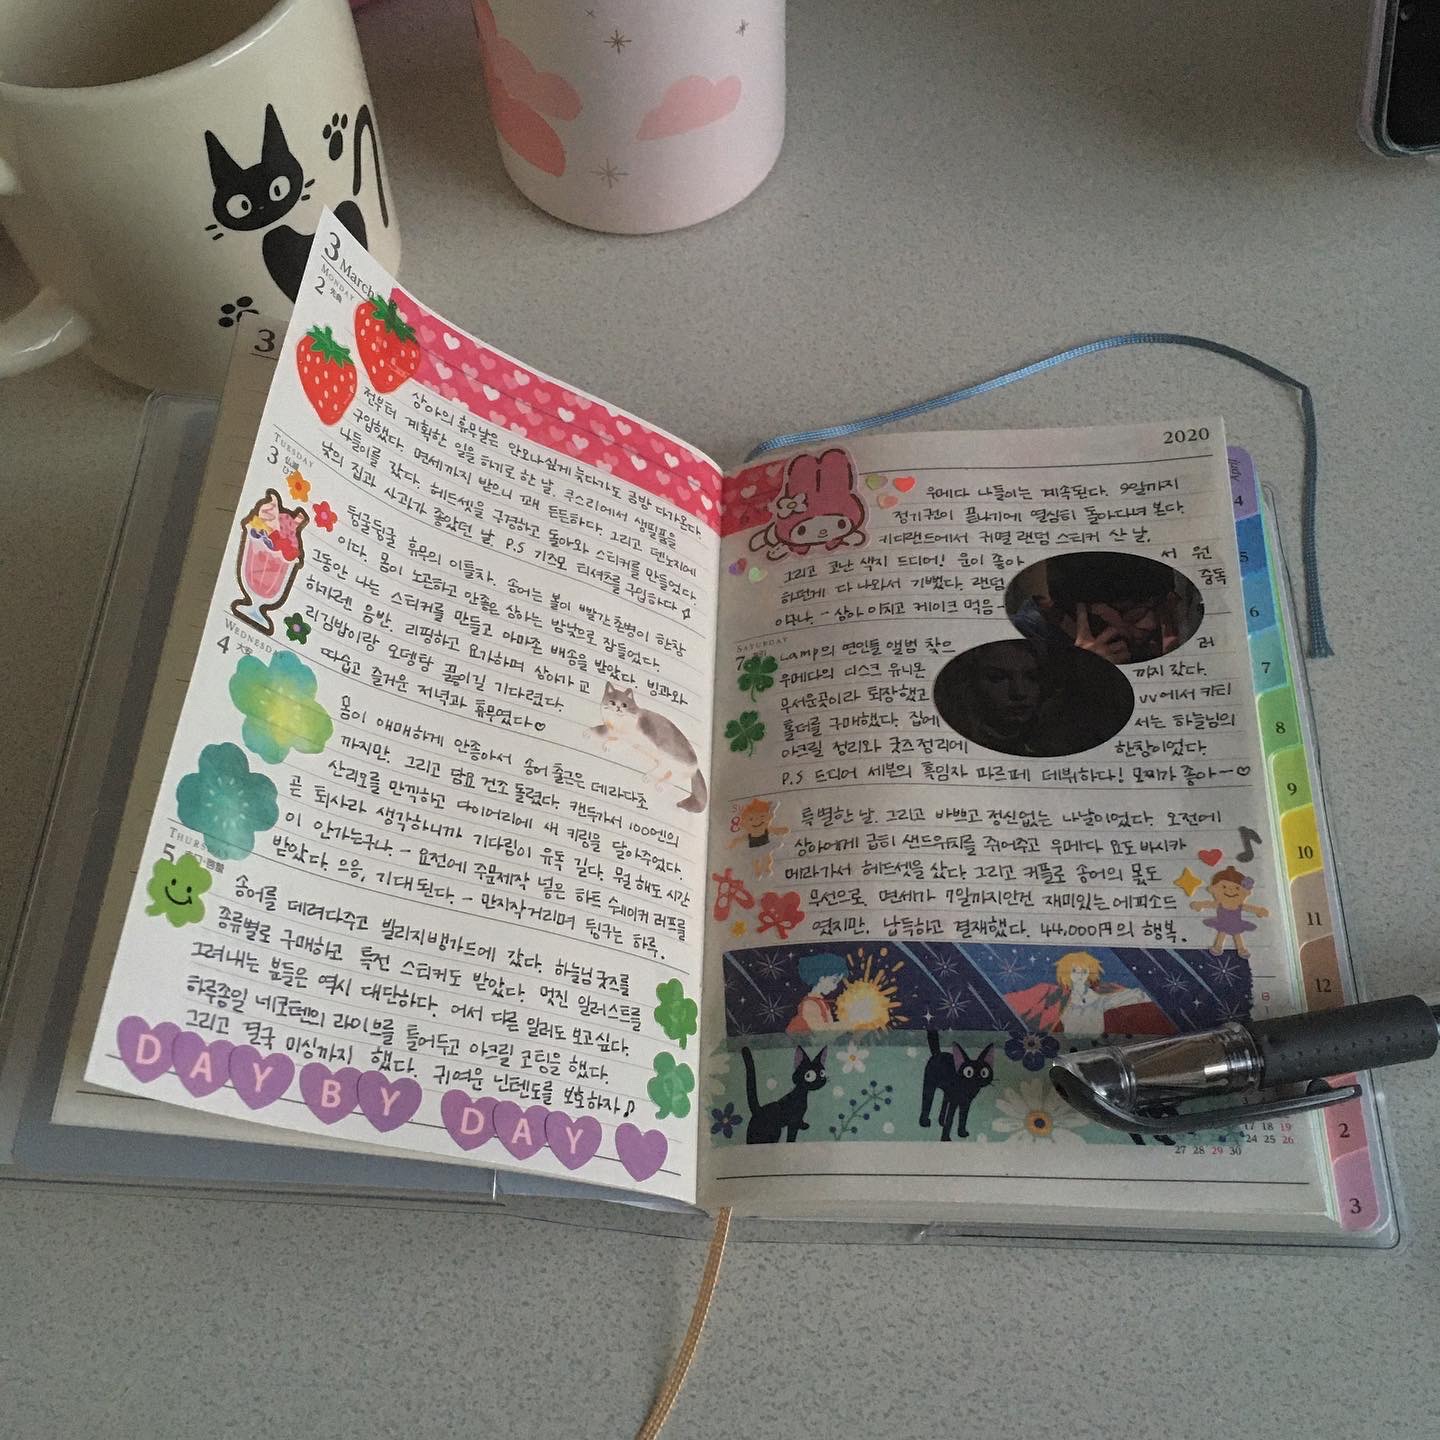 3 March
MONDAY
2
상아의 휴무날은 안오나싶게 늦다가도 금방 다가온다.
전부터 계획한 일을 하기로 한 날. 쿠스리에서 생필품을
구입했다. 면세까지 받으니 꽤 든든하다. 그리고 덴노지에
나들이를 갔다. 헤드셋을 구경하고 돌아와 스티커를 만들었다.
낮의 집과 사과가 좋았던 날. P.S 기즈모 티셔츠를 구입하다
TUESDAY
3
뒹굴뒹굴 휴무의 이틀차. 송어는 볼이 빨간 촌병이 한창
이다. 몸이 노곤하고 안좋은 상아는 밤낮으로 잠들었다.
그동안 나는 스티커를 만들고 아마존 배송을 받았다. 빙과와
하카렌 음반. 리핑하고 요가하며 상아가 교
리김밥이랑 오뎅탕 끓이길 기다렸다.
따숩고 즐거운 저녁과 휴무였다♡
WEDNESDAY
4
몸이 애매하게 안좋아서 송어 출근은 데려다초
까지만. 그리고 담요 건조 돌렸다. 캔두가서 100엔의
산리오를 만끽하고 다이어리에 새 키링을 달아주었다.
곧 퇴사라 생각하니까 기다림이 유독 길다. 뭘 해도 시간
이 안가는구나. - 요전에 주문제작 넣은 하트 쉐이커 러프를
받았다. 으응, 기대된다. - 만지작거리며 뒹구는 하루.
THURSDAY
5
송어를 데려다주고 빌리지뱅가드에 갔다. 하늘님굿즈를
종류별로 구매하고 특전 스티커도 받았다. 멋진 일러스트를
그려내는 분들은 역시 대단하다. 어서 다른 일러도 보고싶다.
하루종일 네코텐의 라이브를 틀어두고 아크릴 코팅을 했다.
그리고 결국 미싱까지 했다. 귀여운 닌텐도를 보호하자♪
DAY BY DAY
2020
우메다 나들이는 계속된다. 9일까지
정기권이 끝나기에 열심히 돌아다녀 본다.
키디랜드에서 커멸 랜덤 스티커 산 날.
그리고 코난 색지 드디어! 운이 좋아서 원
하던게 다 나와서 기뻤다. 랜덤 중독
이구나. - 상아 이치고 케이크 먹음-
SATURDAY
7
Lamp의 연인들 앨범 찾으러
우메다의 디스크 유니온까지 갔다.
무서운곳이라 퇴장했고 vv에서 키티
홀더를 구매했다. 집에서는 하늘님의
아크릴 정리와 굿즈정리에 한창이었다.
P.S 드디어 세븐의 흑임자 파르페 데뷔하다! 모찌가 좋아-♡
8
특별한 날. 그리고 바쁘고 정신없는 나날이었다. 오전에
상아에게 급히 샌드위치를 쥐어주고 우메다 요도바시카
메라가서 헤드셋을 샀다. 그리고 커플로 송어의 몫도
무선으로. 면세가 7일까지안건 재미있는에피소드
였지만. 납득하고 결재했다. 44,000円의 행복.
4
5
6
7
8
9
10
11
12
2
3
17 18 19
24 25 26
27 28 29 30